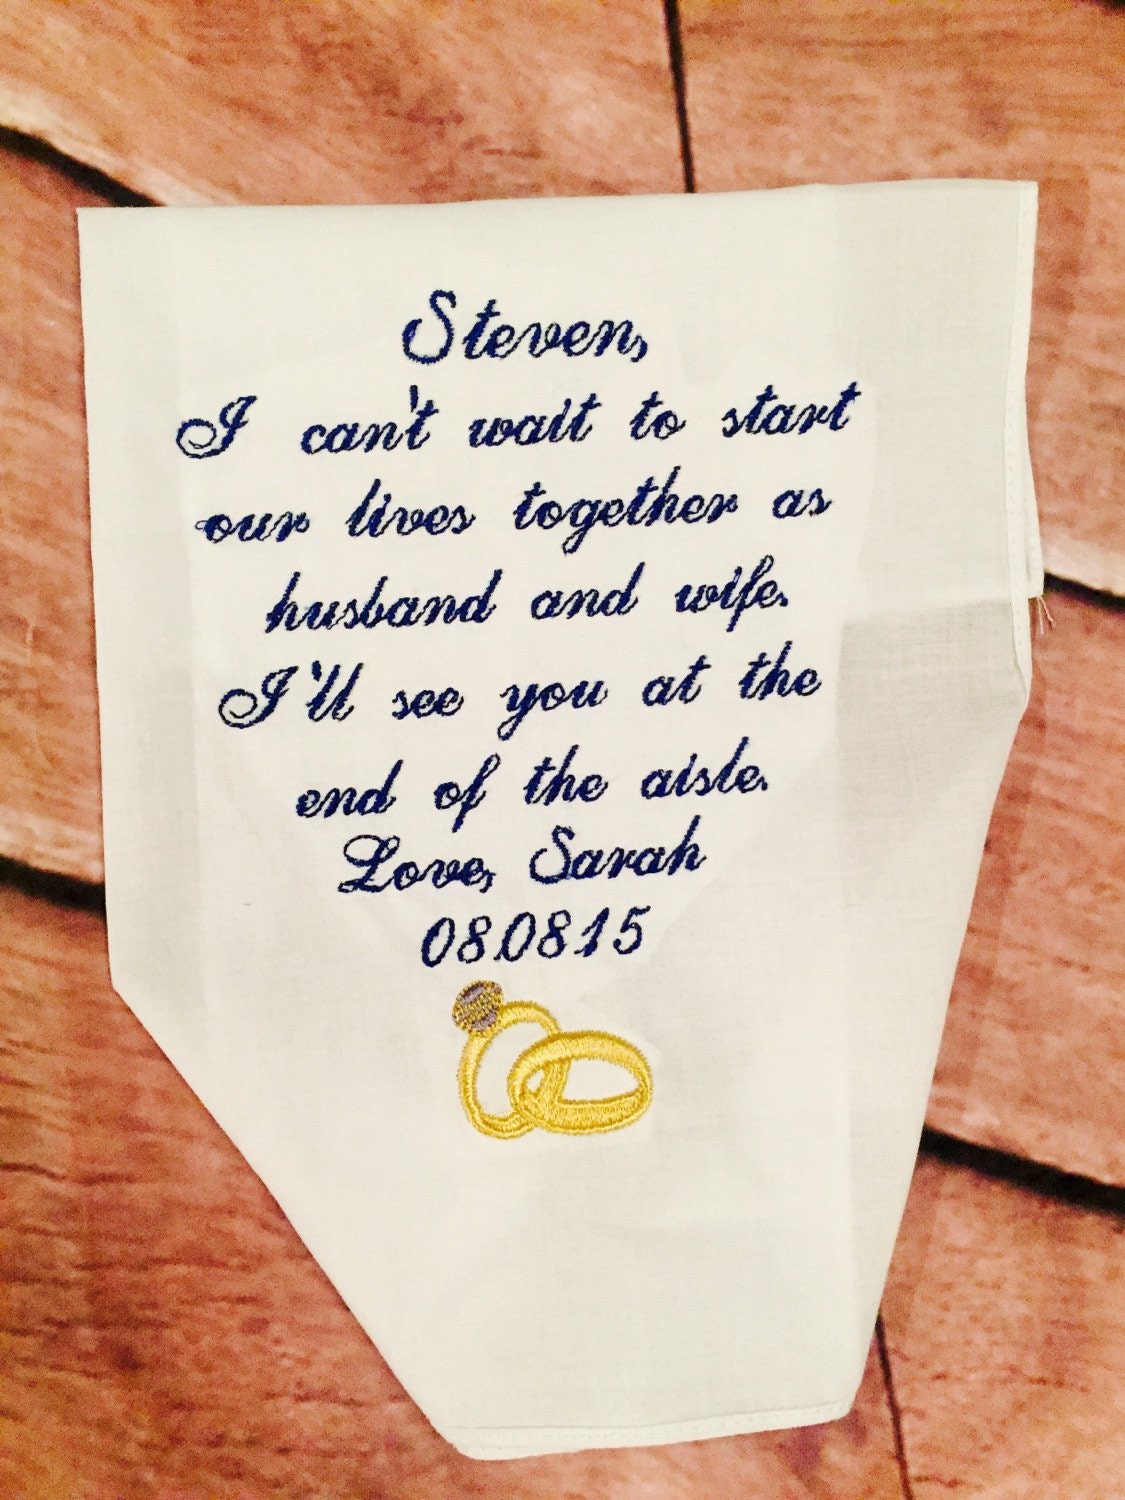 Steven,
I can't wait to start
our lives together as
husband and wife.
I'll see you at the
end of the aisle.
Love, Sarah
08.08.15